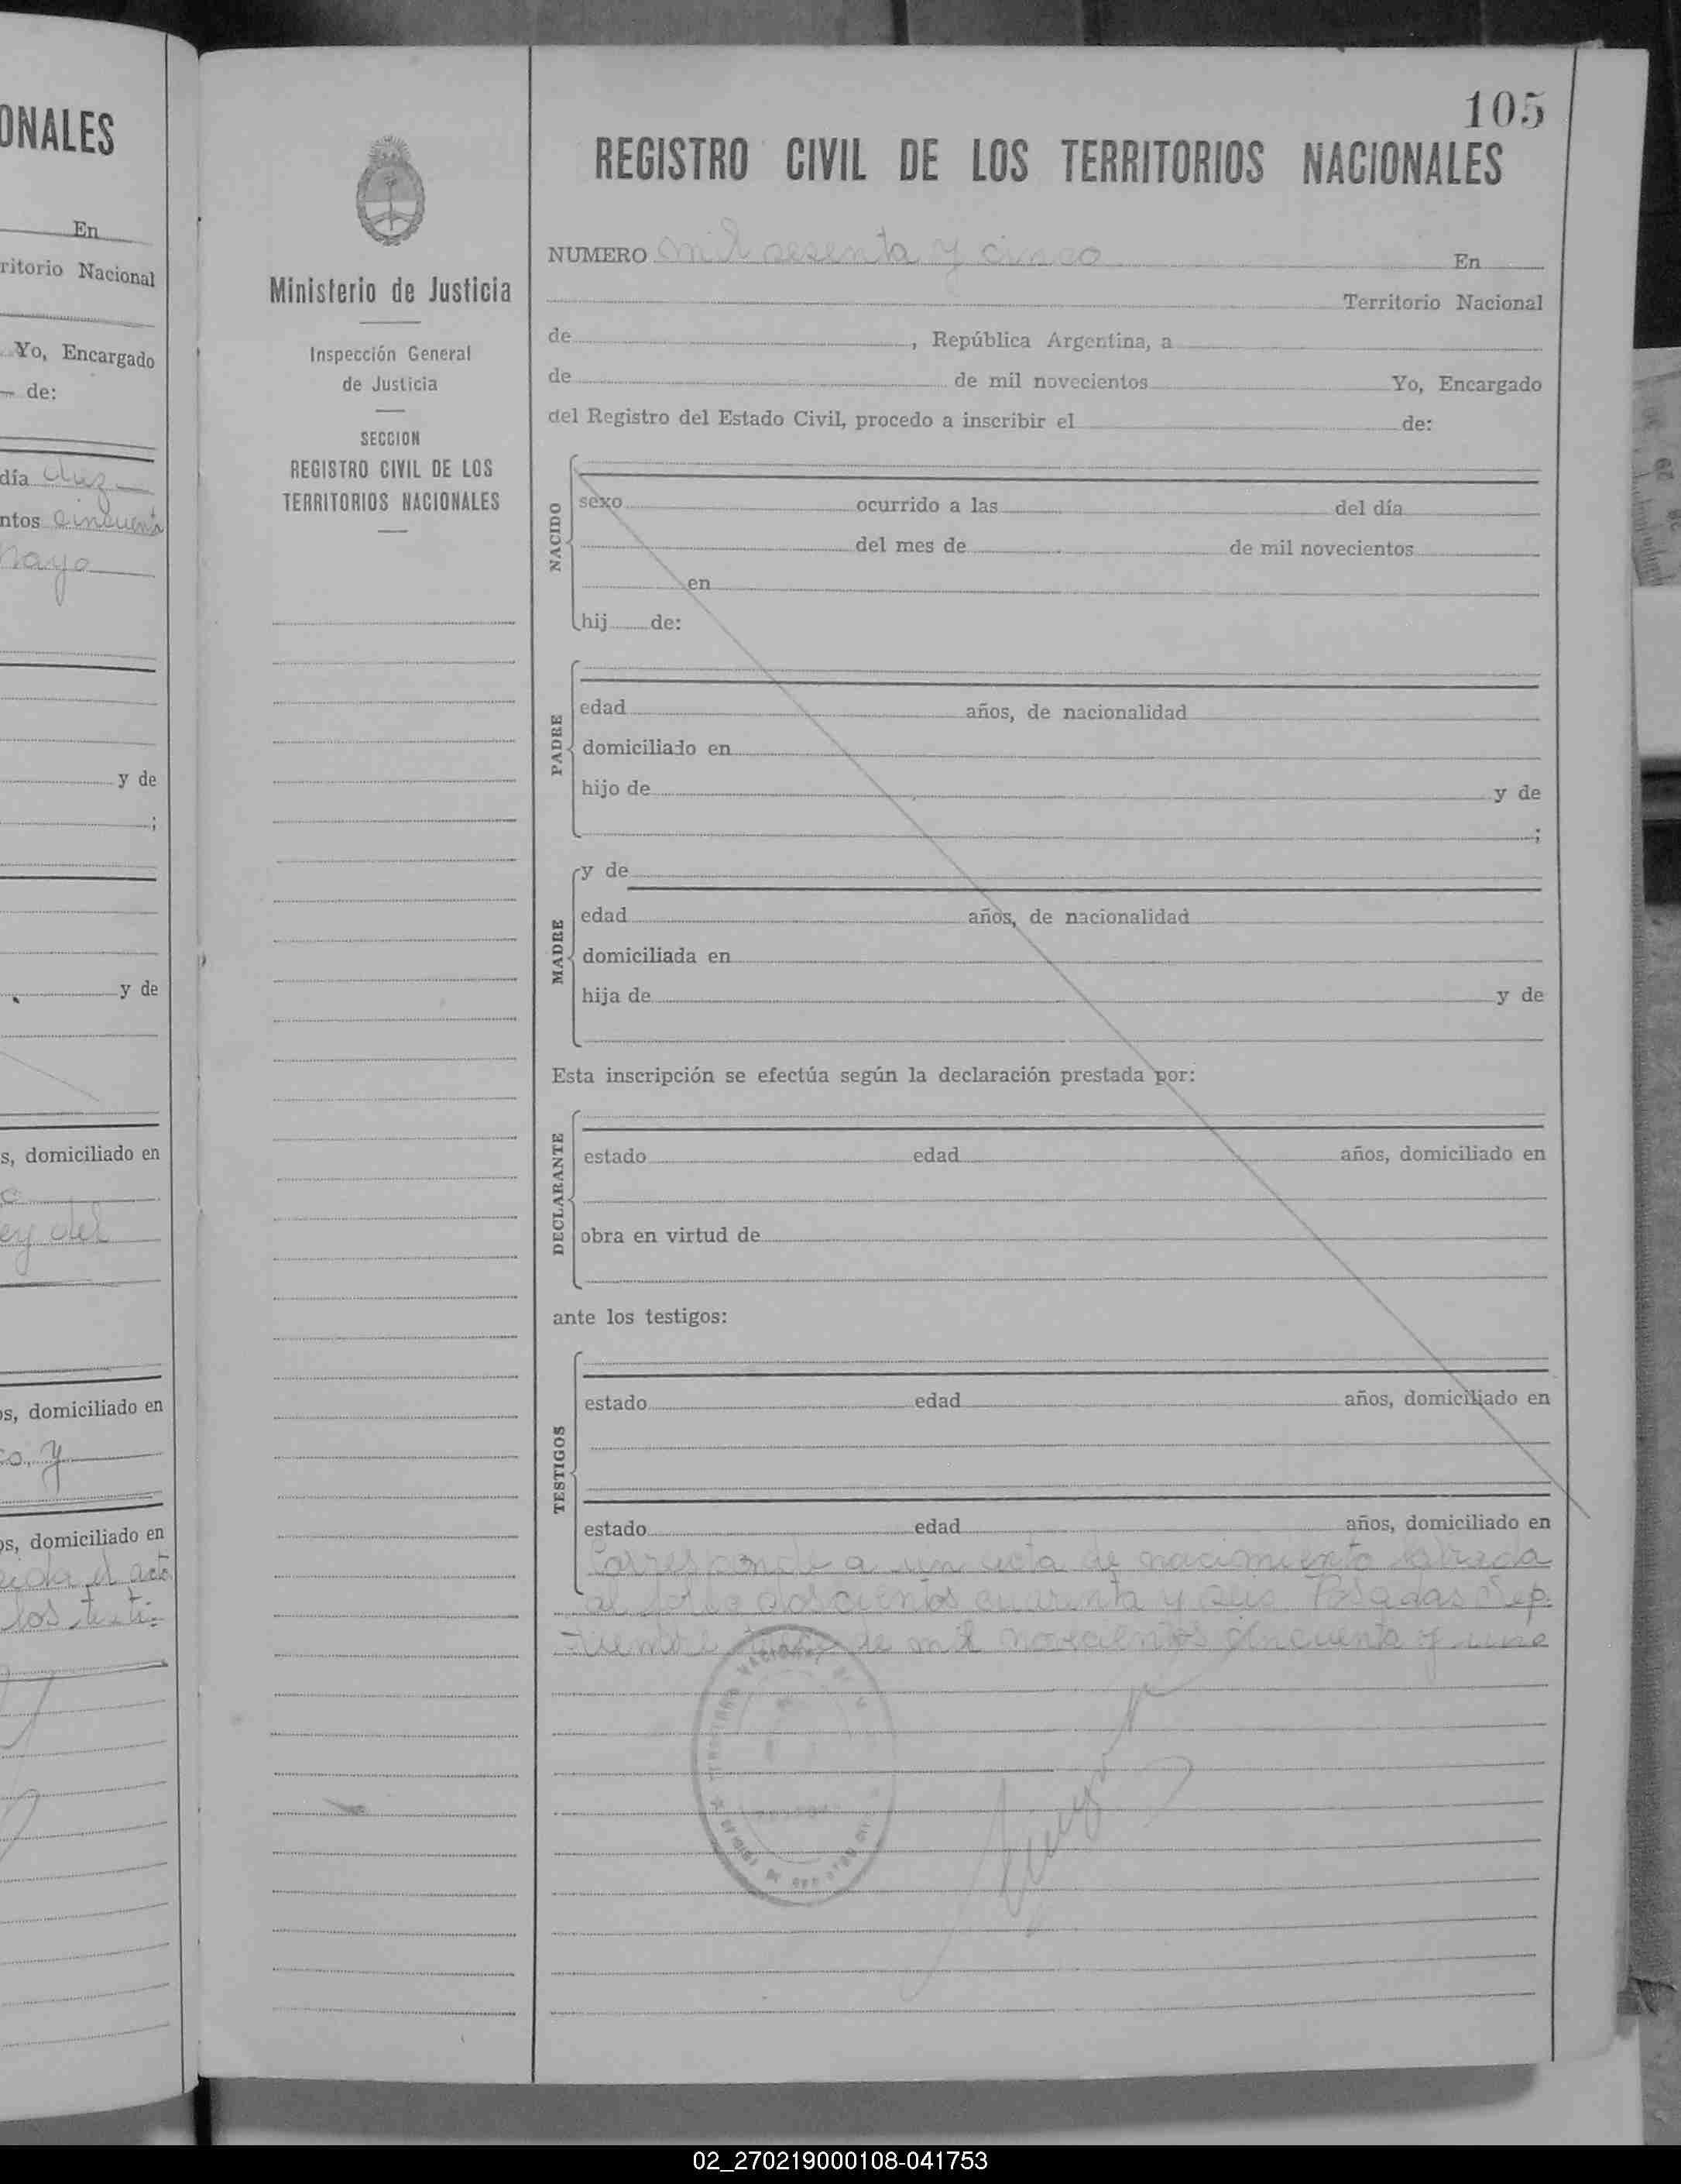 ONALES
En
ritorio Nacional
Yo, Encargado
de:
día diez
ntos cincuenta
mayo
y de
;
y de
s, domiciliado en
ey del
os, domiciliado en
co, y
os, domiciliado en
el acta
los testi-
Ministerio de Justicia
Inspección General
de Justicia
SECCION
REGISTRO CIVIL DE LOS
TERRITORIOS NACIONALES
105
REGISTRO CIVIL DE LOS TERRITORIOS NACIONALES
NUMERO mil sesenta y cinco En
Territorio Nacional
de , República Argentina, a
de de mil novecientos Yo, Encargado
del Registro del Estado Civil, procedo a inscribir el de:
NACIDO
sexo ocurrido a las del día
del mes de de mil novecientos
en
hij de:
PADRE
edad años, de nacionalidad
domiciliado en
hijo de y de
;
MADRE
y de
edad años, de nacionalidad
domiciliada en
hija de y de
Esta inscripción se efectúa según la declaración prestada por:
DECLARANTE
estado edad años, domiciliado en
obra en virtud de
ante los testigos:
TESTIGOS
estado edad años, domiciliado en
estado edad años, domiciliado en
Corresponde a un acta de nacimiento labrada
al folio doscientos cuarenta y Posadas Sep
tiembre de mil novecientos cincuenta y uno
02_270219000108-041753